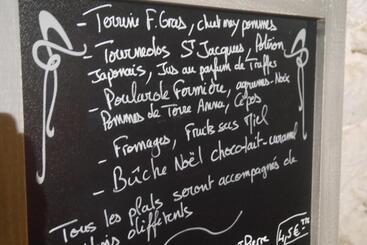 - Terrine F. Gras, chutney pommes
- Tournedos St Jacques, Potiron
Japonais, Jus au parfum de Truffes
- Poularde Fermière, agrumes-Noix
Pommes de Terre Anna, Cèpes
- Fromages, Fruits secs Miel
- Bûche Noël choco-lait-caramel
Tous les plats seront accompagnés de
différents